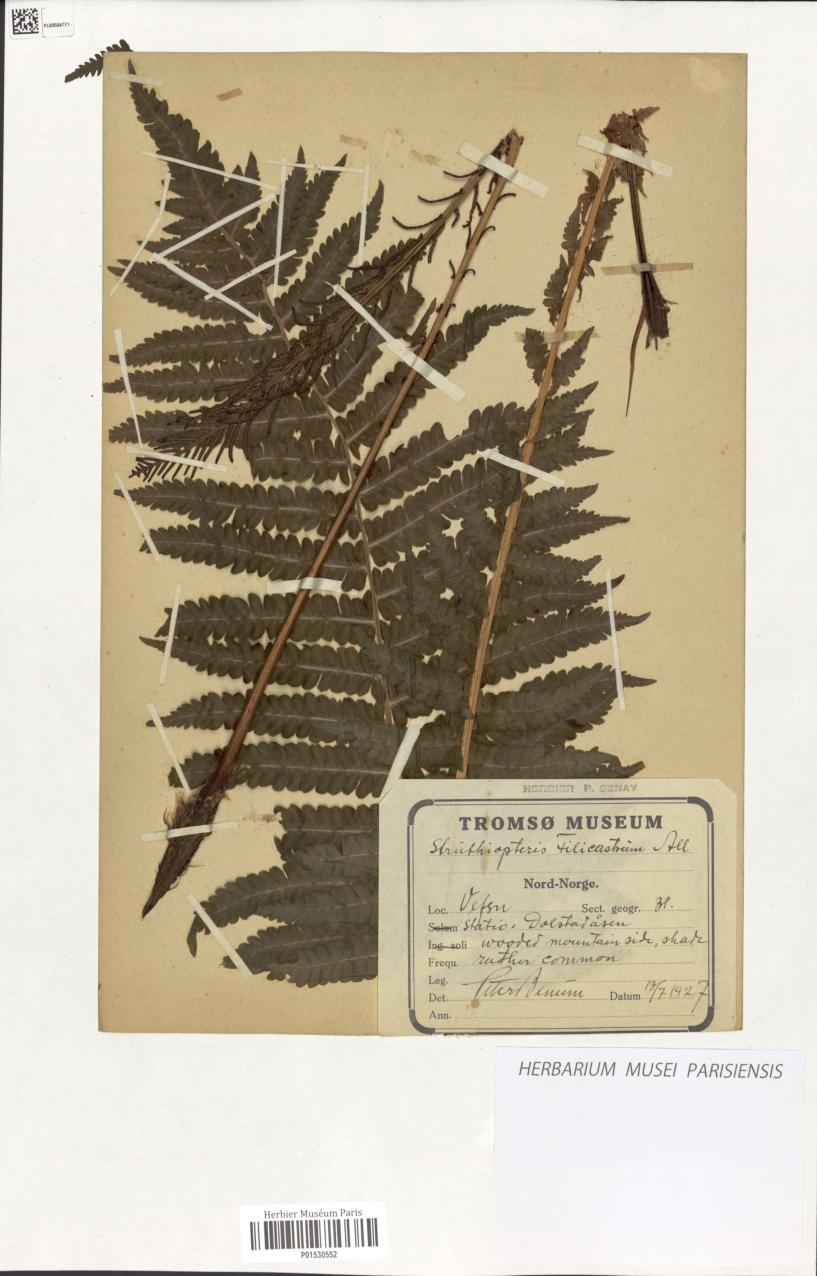 PL00504771
HERBIER P. SENAY
TROMSØ MUSEUM
Struthiopteris Filicastrum All
Nord-Norge.
Loc. Vefsn Sect. geogr. 31.
Solum Statio. Dolstadåsen
Ing. soli wooded mountain side, shade
Frequ. rather common
Leg.
Det. Peter Benum Datum 13/7 1927
Ann.
HERBARIUM MUSEI PARISIENSIS
Herbier Muséum Paris
P01530552